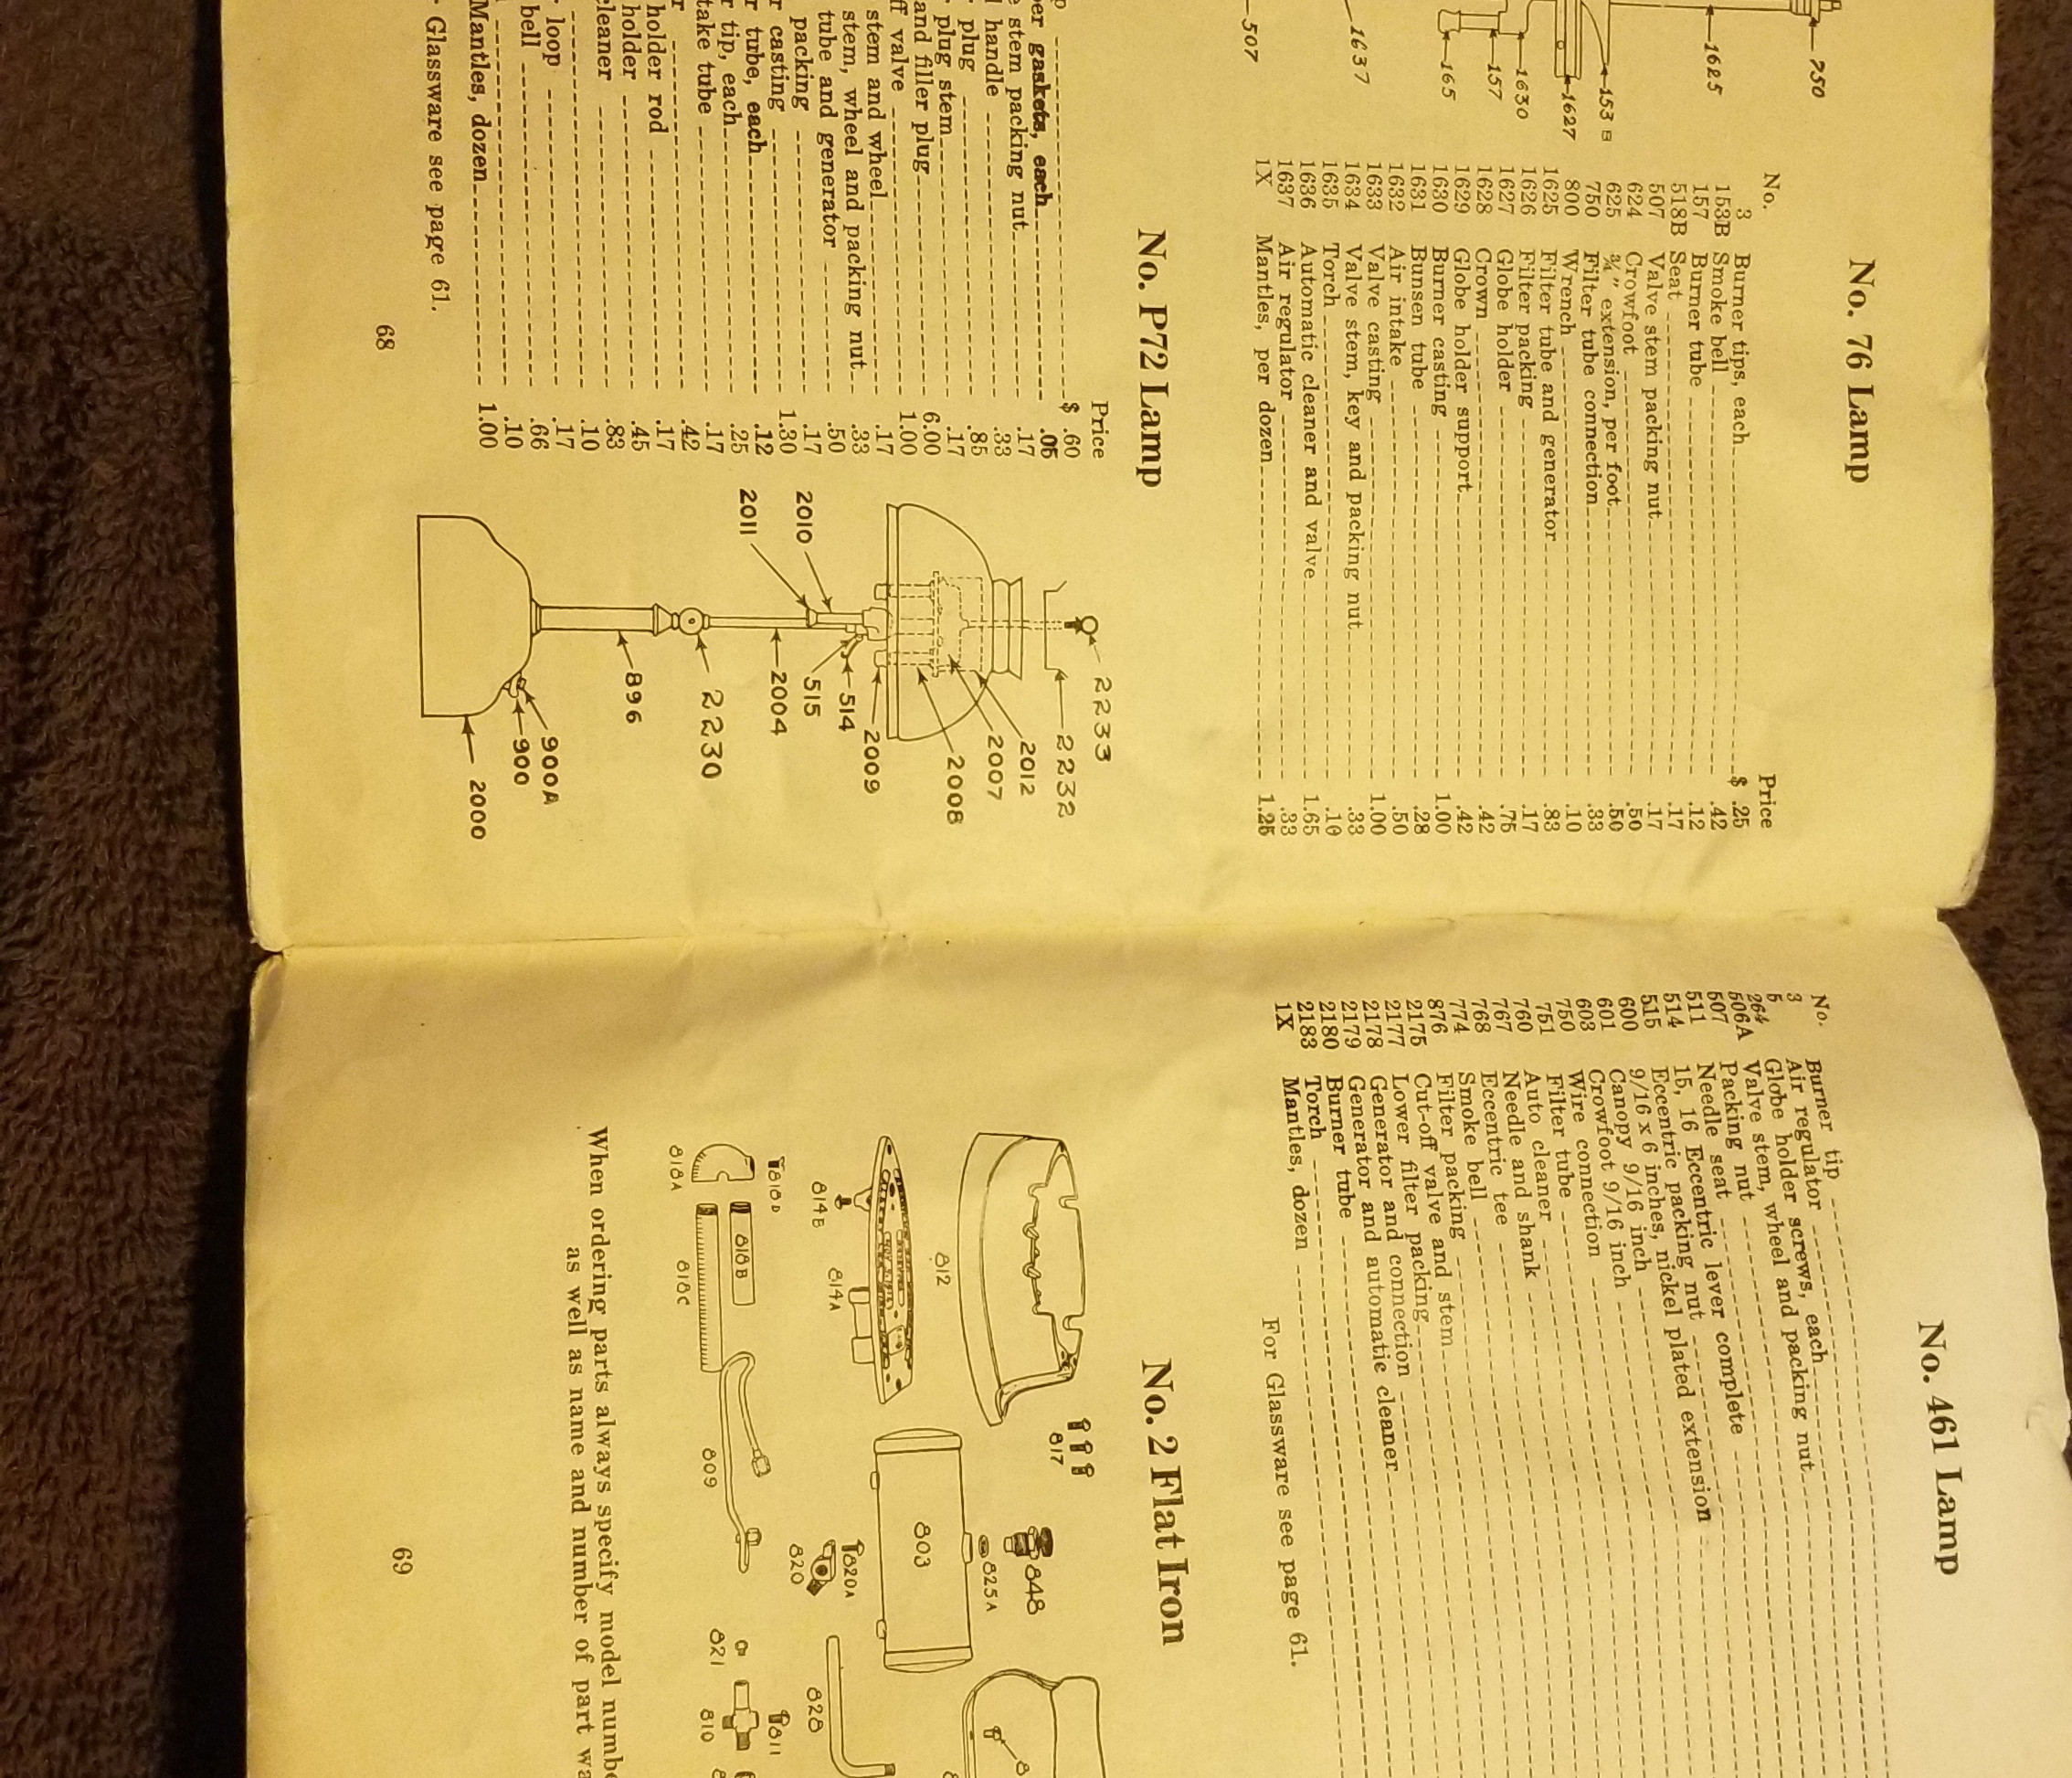 750
1625
153 B
1627
1630
157
165
1637
507
No. 76 Lamp
No. Price
3 Burner tips, each $ .25
153B Smoke bell .42
157 Burner tube .12
518B Seat .17
507 Valve stem packing nut .17
624 Crowfoot .50
625 ¾" extension, per foot .50
750 Filter tube connection .33
800 Wrench .10
1625 Filter tube and generator .83
1626 Filter packing .17
1627 Globe holder .75
1628 Crown .42
1629 Globe holder support .42
1630 Burner casting 1.00
1631 Bunsen tube .28
1632 Air intake .50
1633 Valve casting 1.00
1634 Valve stem, key and packing nut .33
1635 Torch .10
1636 Automatic cleaner and valve 1.65
1637 Air regulator .33
1X Mantles, per dozen 1.25
No. P72 Lamp
Price
p $ .60
er gaskets, each .05
e stem packing nut .17
l handle .33
r plug .85
r plug stem .17
and filler plug 6.00
ff valve 1.00
stem and wheel .17
stem, wheel and packing nut .33
tube and generator .50
packing .17
r casting 1.30
r tube, each .12
r tip, each .25
take tube .17
r .42
holder rod .17
holder .45
cleaner .83
.10
loop .17
bell .66
.10
Mantles, dozen 1.00
r Glassware see page 61.
2233
2232
2012
2007
2008
2009
514
515
2010
2011
2004
2230
896
900A
900
2000
68
No. 461 Lamp
No.
3 Burner tip
5 Air regulator
264 Globe holder screws, each
506A Valve stem, wheel and packing nut
507 Packing nut
511 Needle seat
514 15, 16 Eccentric lever complete
515 Eccentric packing nut
600 9/16 x 6 inches, nickel plated extension
601 Canopy 9/16 inch
603 Crowfoot 9/16 inch
750 Wire connection
751 Filter tube
760 Auto cleaner
767 Needle and shank
768 Eccentric tee
774 Smoke bell
876 Filter packing
2175 Cut-off valve and stem
2177 Lower filter packing
2178 Generator and connection
2179 Generator and automatic cleaner
2180 Burner tube
2183 Torch
1X Mantles, dozen
For Glassware see page 61.
No. 2 Flat Iron
817
848
825A
812
803
814B
814A
820A
820
828
818D
818A
818B
818C
809
821
811
810
When ordering parts always specify model numbe
as well as name and number of part wa
69